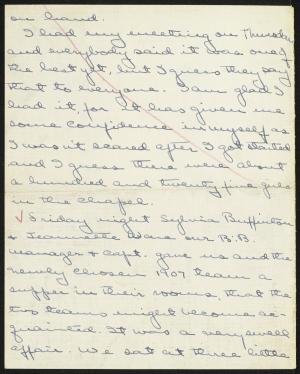 on hand.
I led my meeting on Thursday
and everybody said it was one of
the best yet, but I guess they say
that to everyone. I am glad I
had it, for it has given me
some confidence in myself as
I wasn't scared after I got started
and I guess there were about
a hundred and twenty five girls
in the chapel.
Friday night Sylvia Buffinton
& Jeannette Ware our B.B.
manager & capt. gave us and the
newly chosen 1907 team a
supper in their rooms, that the
two teams might become ac-
quainted. It was a very swell
affair. We sat at three little